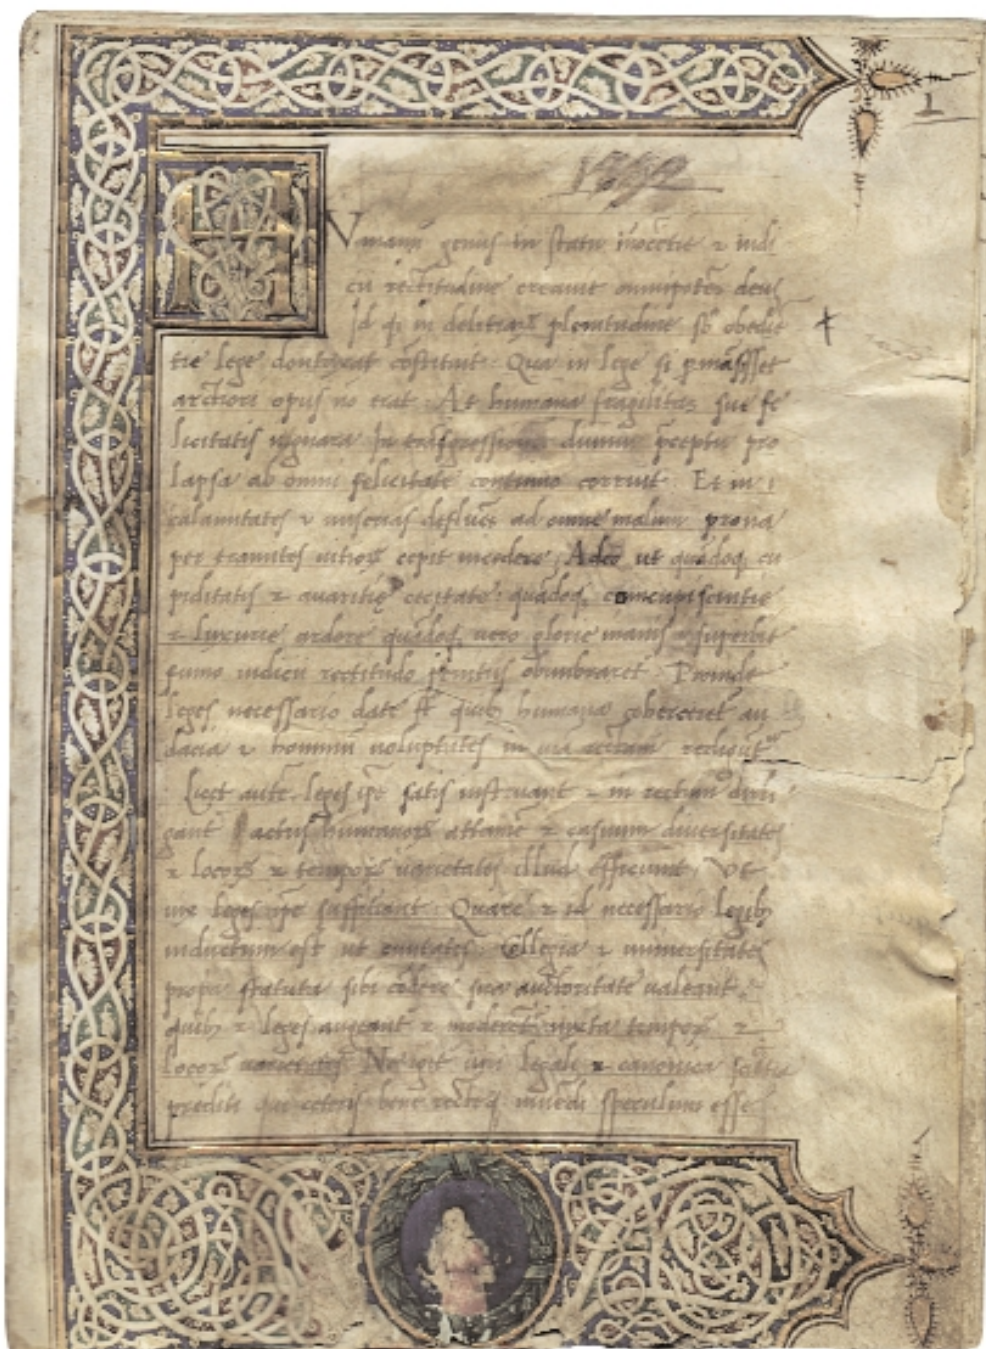 1
HVmanū genus in statu inocētie & indi
cū rectitudine creauit omnipotēs deus
Id qȝ in plenitudine sb obediē
tie lege constituit. Qua in lege si pmāsisset
arctiori opus nō erat. At humana fragilitas sue fe
licitatis ignara In trāsgressionē diuini p̄ceptū pro
lapsa ab omni felicitate continuo corruit. Et in
calamitates & miserias ad omne malum prona
per tramites uitioꝝ cepit incedere. Adeo ut quādoqȝ cu
piditatis & auaritię cecitate: quādoqȝ concupiscentie
& luxurie ardore quādoqȝ uero glorie inanis & superbie
fumo iudicii rectitudo penitus obumbraret. Proinde
leges necessario date st̄ quibȝ humana coherceret au
dacia & hominū uoluptates in uiā rectam
Licet autē leges ipē satis instruant & in rectum diri
gant actus humanoꝝ attamē & casuum diuersitates
& locoꝝ & tempoꝝ uarietates illud efficiunt, Vt
leges ipē sufficiant. Quare & id necessario legibȝ
inductum est ut ciuitates: Collegia & uniuersitates
propia statuta sibi cōdere sua auctoritate ualeant.
quibȝ & leges augeant & moderēt iuxta tempoꝝ &
locoꝝ uarietates. legali & canonica
prediti qui ceteris bene recteqȝ uiuēdi speculum esse